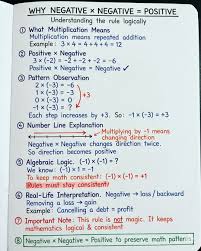 WHY NEGATIVE × NEGATIVE = POSITIVE
Understanding the rule logically
① What Multiplication Means
Multiplication means repeated addition
Example: 3 × 4 = 4 + 4 + 4 = 12
② Positive × Negative
3 × (-2) = -2 + -2 + -2 = -6
Positive × Negative = Negative ✓
③ Pattern Observation
3 × (-3) =
2 × (-3) = -6
1 × (-3) = -3
0 × (-3) = 0
+3
Each step increases by +3. So: (-1) × (-3) = +3
④ Number Line Explanation
Multiplying by -1 means
changing direction
Negative × Negative changes direction twice.
So direction becomes positive
⑤ Algebraic Logic. (-1) × (-1) = ?
We know: (-1) × 1 = -1
To keep math consistent: (-1) × (-1) = +1
Rules must stay consistent!
⑥ Real-Life Interpretation. Negative → loss/backward
Removing a loss → gain
Example: Cancelling a debt = profit
⑦ Important Note: This rule is not magic. It keeps
mathematics logical & consistent
⑧ Negative × Negative = Positive to preserve math patterns